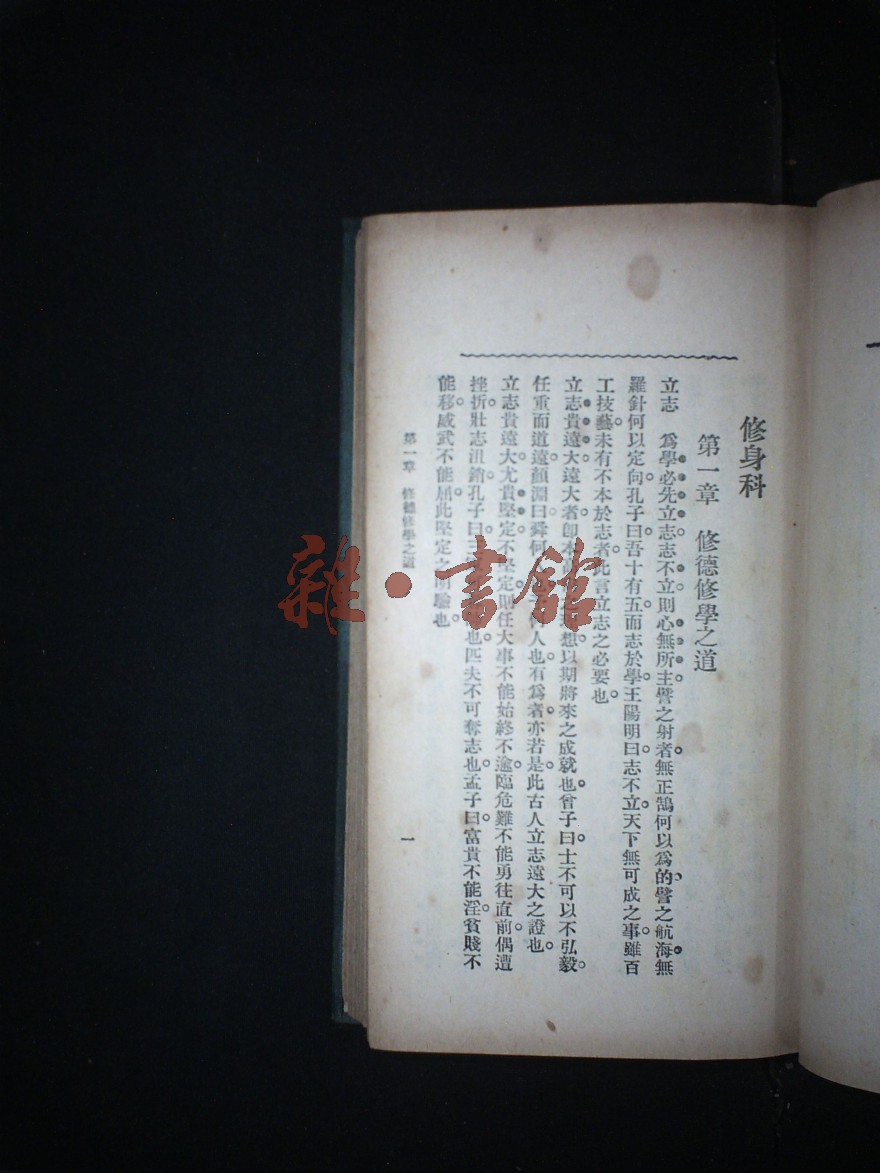 修身科
第一章 修德修學之道
立志 爲學必先立志志不立則心無所主譬之射者無正鵠何以爲的譬之航海無
羅針何以定向孔子曰吾十有五而志於學王陽明曰志不立天下無可成之事雖百
工技藝未有不本於志者此言立志之必要也
立志貴遠大遠大者卽本 想以期將來之成就也曾子曰士不可以不弘毅
任重而道遠顏淵曰舜何 人也有爲者亦若是此古人立志遠大之證也
立志貴遠大尤貴堅定不堅定則任大事不能始終不逾臨危難不能勇往直前偶遭
挫折壯志沮銷孔子曰三 也匹夫不可奪志也孟子曰富貴不能淫貧賤不
能移威武不能屈此堅定之明驗也
第一章 修德修學之道
一
雜·書館